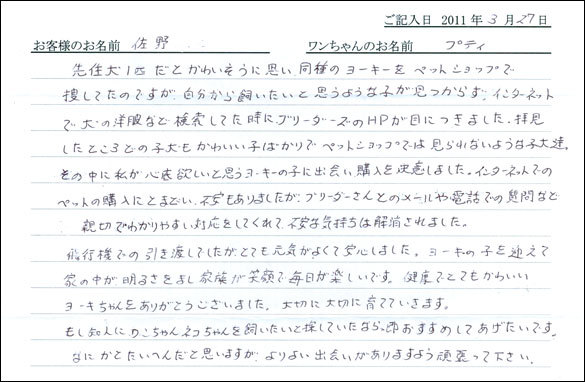 ご記入日 2011年3月27日
お客様のお名前 佐野 ワンちゃんのお名前 プティ
先住犬1匹だとかわいそうに思い、同種のヨーキーをペットショップで
捜してたのですが、自分から飼いたいと思うような子が見つからず、インターネット
で犬の洋服など検索してた時にブリーダーズのHPが目につきました。拝見
したところどの子犬もかわいい子ばかりでペットショップでは見られないような子犬達。
その中に私が心底欲しいと思うヨーキーの子に出会い購入を決意しました。インターネットでの
ペットの購入にとまどい、不安もありましたが、ブリーダーさんとのメールや電話での質問など
親切でわかりやすい対応をしてくれて、不安な気持ちは解消されました。
飛行機での引き渡しでしたが、とても元気がよくて安心しました。ヨーキーの子を迎えて
家の中が明るさをまし家族が笑顔で毎日が楽しいです。健康でとてもかわいい
ヨーキーちゃんをありがとうございました。大切に大切に育てていきます。
もし知人にワンちゃんネコちゃんを飼いたいと探していたなら、即おすすめしてあげたいです。
なにかとたいへんだと思いますが、よりよい出会いがありますよう頑張って下さい。